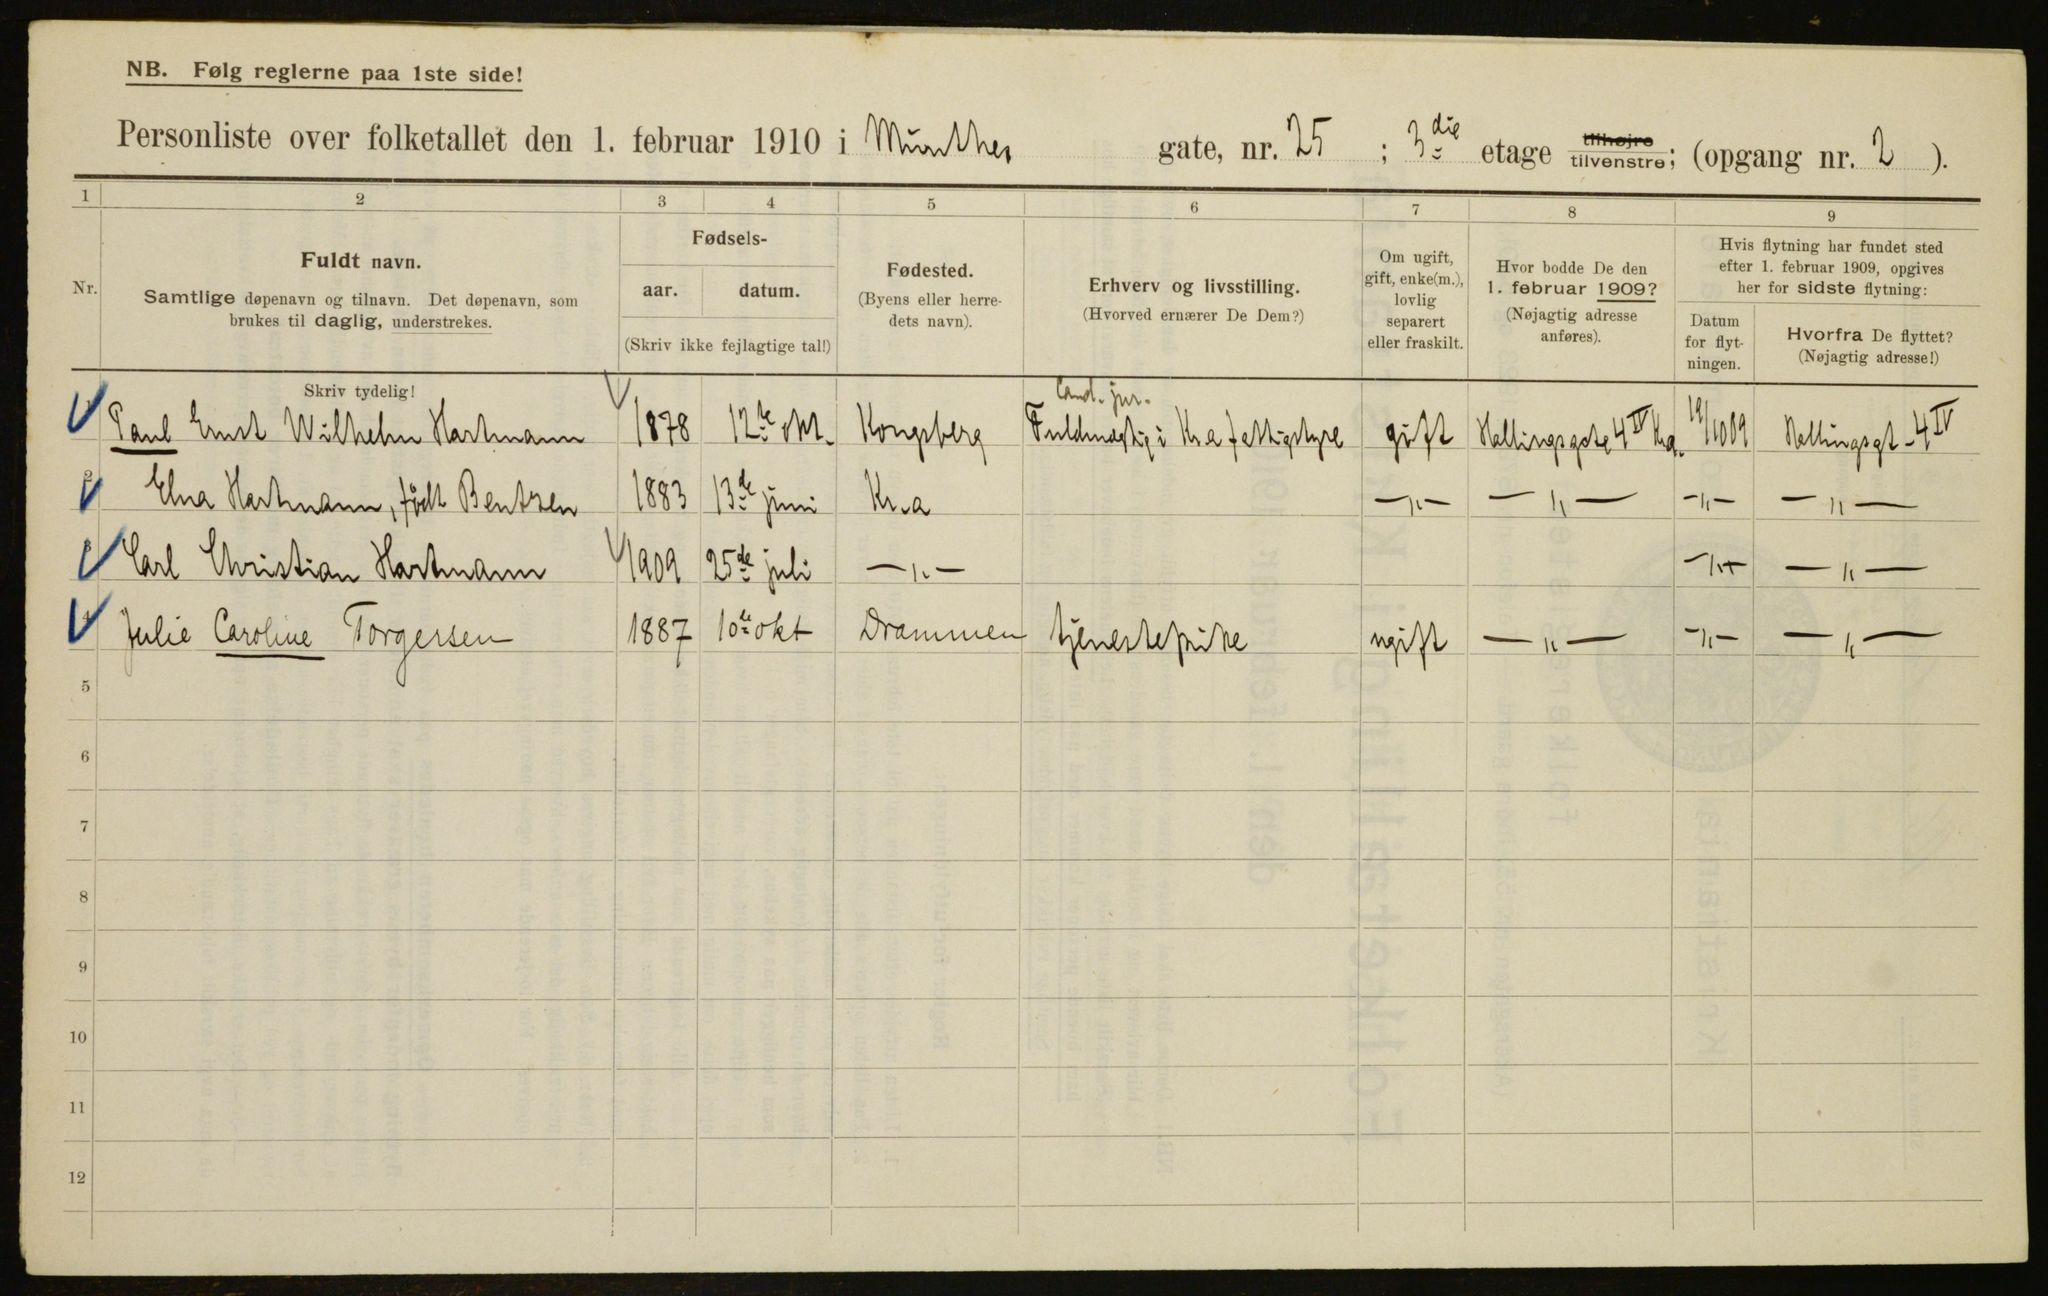 NB. Følg reglerne paa 1ste side!
Personliste over folketallet den 1. februar 1910 i Munthes gate, nr. 25 ; 3die etage tilhøjre tilvenstre; (opgang nr. 2 ).
1 2 3 4 5 6 7 8 9
Nr.
Fuldt navn.
Samtlige døpenavn og tilnavn. Det døpenavn, som
brukes til daglig, understrekes.
Fødsels-
aar. datum.
(Skriv ikke fejlagtige tal!)
Fødested.
(Byens eller herre-
dets navn).
Erhverv og livsstilling.
(Hvorved ernærer De Dem?)
Om ugift,
gift, enke(m.),
lovlig
separert
eller fraskilt.
Hvor bodde De den
1. februar 1909?
(Nøjagtig adresse
anføres).
Hvis flytning har fundet sted
efter 1. februar 1909, opgives
her for sidste flytning:
Datum
for flyt-
ningen.
Hvorfra De flyttet?
(Nøjagtig adresse!)
Skriv tydelig!
Cand. jur.
Paul Ernst Wilhelm Hartmann 1878 12te okt. Kongsberg Fuldmægtig i Kr.a fattigstyre gift Hallingsgate 4 IV Kra. 19/10 09 Hallingsgt - 4 IV
2 Elna Hartmann, født Bentzen 1883 13de juni Kr.a —„— —„— —„— —„—
3 Carl Christian Hartmann 1909 25de juli —„— —„— —„—
4 Julie Caroline Torgersen 1887 10de okt Drammen tjenestepike ugift —„— —„— —„—
5
6
7
8
9
10
11
12